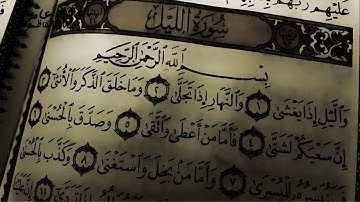 عليهم ربهم
سورة الليل
بسم الله الرحمن الرحيم
وَالَّيْلِ إِذَا يَغْشَىٰ ١ وَالنَّهَارِ إِذَا تَجَلَّىٰ ٢ وَمَا خَلَقَ الذَّكَرَ وَالْأُنثَىٰ ٣
إِنَّ سَعْيَكُمْ لَشَتَّىٰ ٤ فَأَمَّا مَنْ أَعْطَىٰ وَاتَّقَىٰ ٥ وَصَدَّقَ بِالْحُسْنَىٰ ٦
لِلْيُسْرَىٰ ٧ وَأَمَّا مَن بَخِلَ وَاسْتَغْنَىٰ ٨ وَكَذَّبَ بِالْحُسْنَىٰ